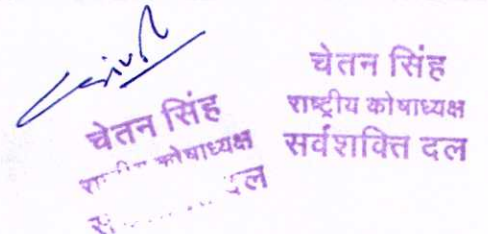 चेतन सिंह
राष्ट्रीय कोषाध्यक्ष
सर्वशक्ति दल
चेतन सिंह
कोषाध्यक्ष
दल